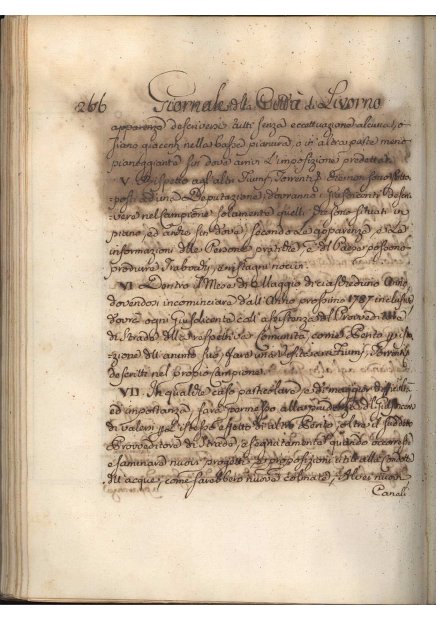 266 Giornale della Città di Livorno
apparenza descriversi tutti senza eccettuazione alcuna, o
siano giacenti nella bassa pianura, o in altra parte meno
pianeggiante fin dove arrivi l'imposizione predetta.
V. Rispetto agl'altri Fiumi, Torrenti, che non sono sotto
posti ad una Deputazione dovranno i Giusdicenti descri
vere nel campione solamente quelli che sono situati in
piano ed anche fin dove secondo le apparenze, e le
informazioni delle Persone pratiche del Paese possono
produrre Trabocchi, e ristagni nocivi.
VI. Dentro il Mese di Maggio di ciascheduno Anno,
dovendosi incominciare dall'Anno prossimo 1787 inclusive
dovrà ogni Giusdicente coll'assistenza del Provveditore
di Strade delle respettive Comunità, come
zione del annuo suo, fare una visita a i Fiumi, Torrenti
descritti nel proprio campione.
VII. In qualche caso particolare, e di maggior difficoltà
ed importanza, sarà permesso alla prudenza dei Giusdicenti
di valersi per l'istesso effetto di altro Perito, oltre il suddetto
Provveditore di Strade, e segnatamente quando occorresse
esaminare nuovi progetti, e proposizioni utili alla condotta
dell'acque, come sarebbero nuove colmate, Alvei nuovi
Canali